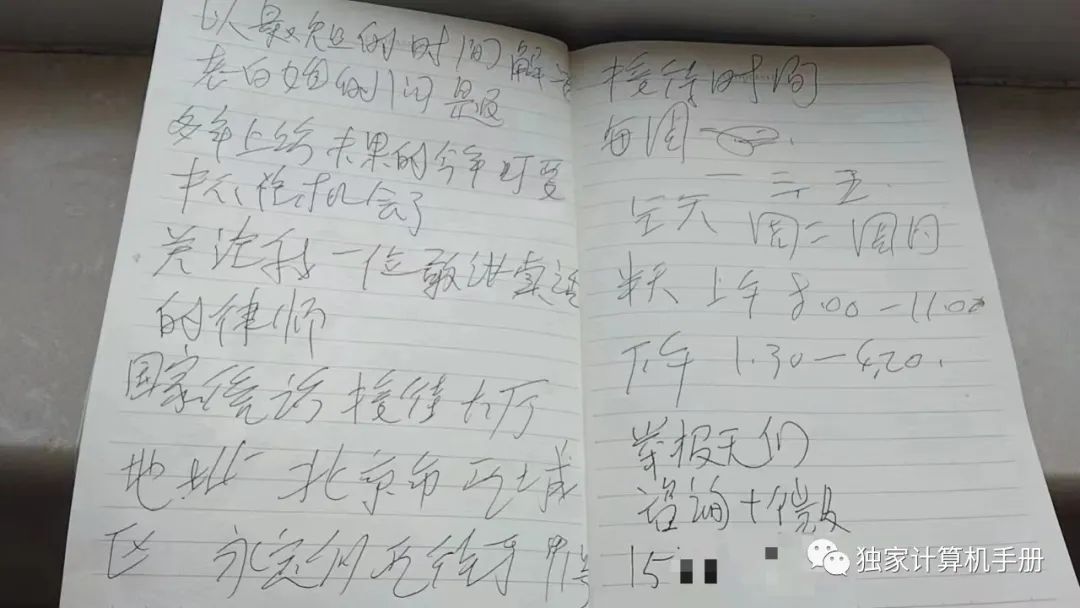 以最短的时间解
老百姓的问题
多年上访未果的今年可要
抓机会了
关注我一位敢讲真话
的律师
国家信访接待大厅
地址 北京市西城
区 永定门西街甲
接待时间
每周
一 三 五
全天 周二 周四
半天 上午 8:00-11:00
下午 1:30-4:20.
举报无门
咨询+微
15
独家计算机手册